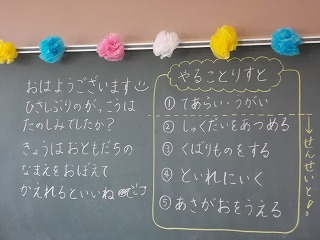 おはようございます
ひさしぶりのがっこうは
たのしみでしたか?
きょうはおともだちの
なまえをおぼえて
かえれるといいね
やることりすと
①てあらい・うがい
②しゅくだいをあつめる
③くばりものをする
④といれにいく
⑤あさがおをうえる
せんせいと!!